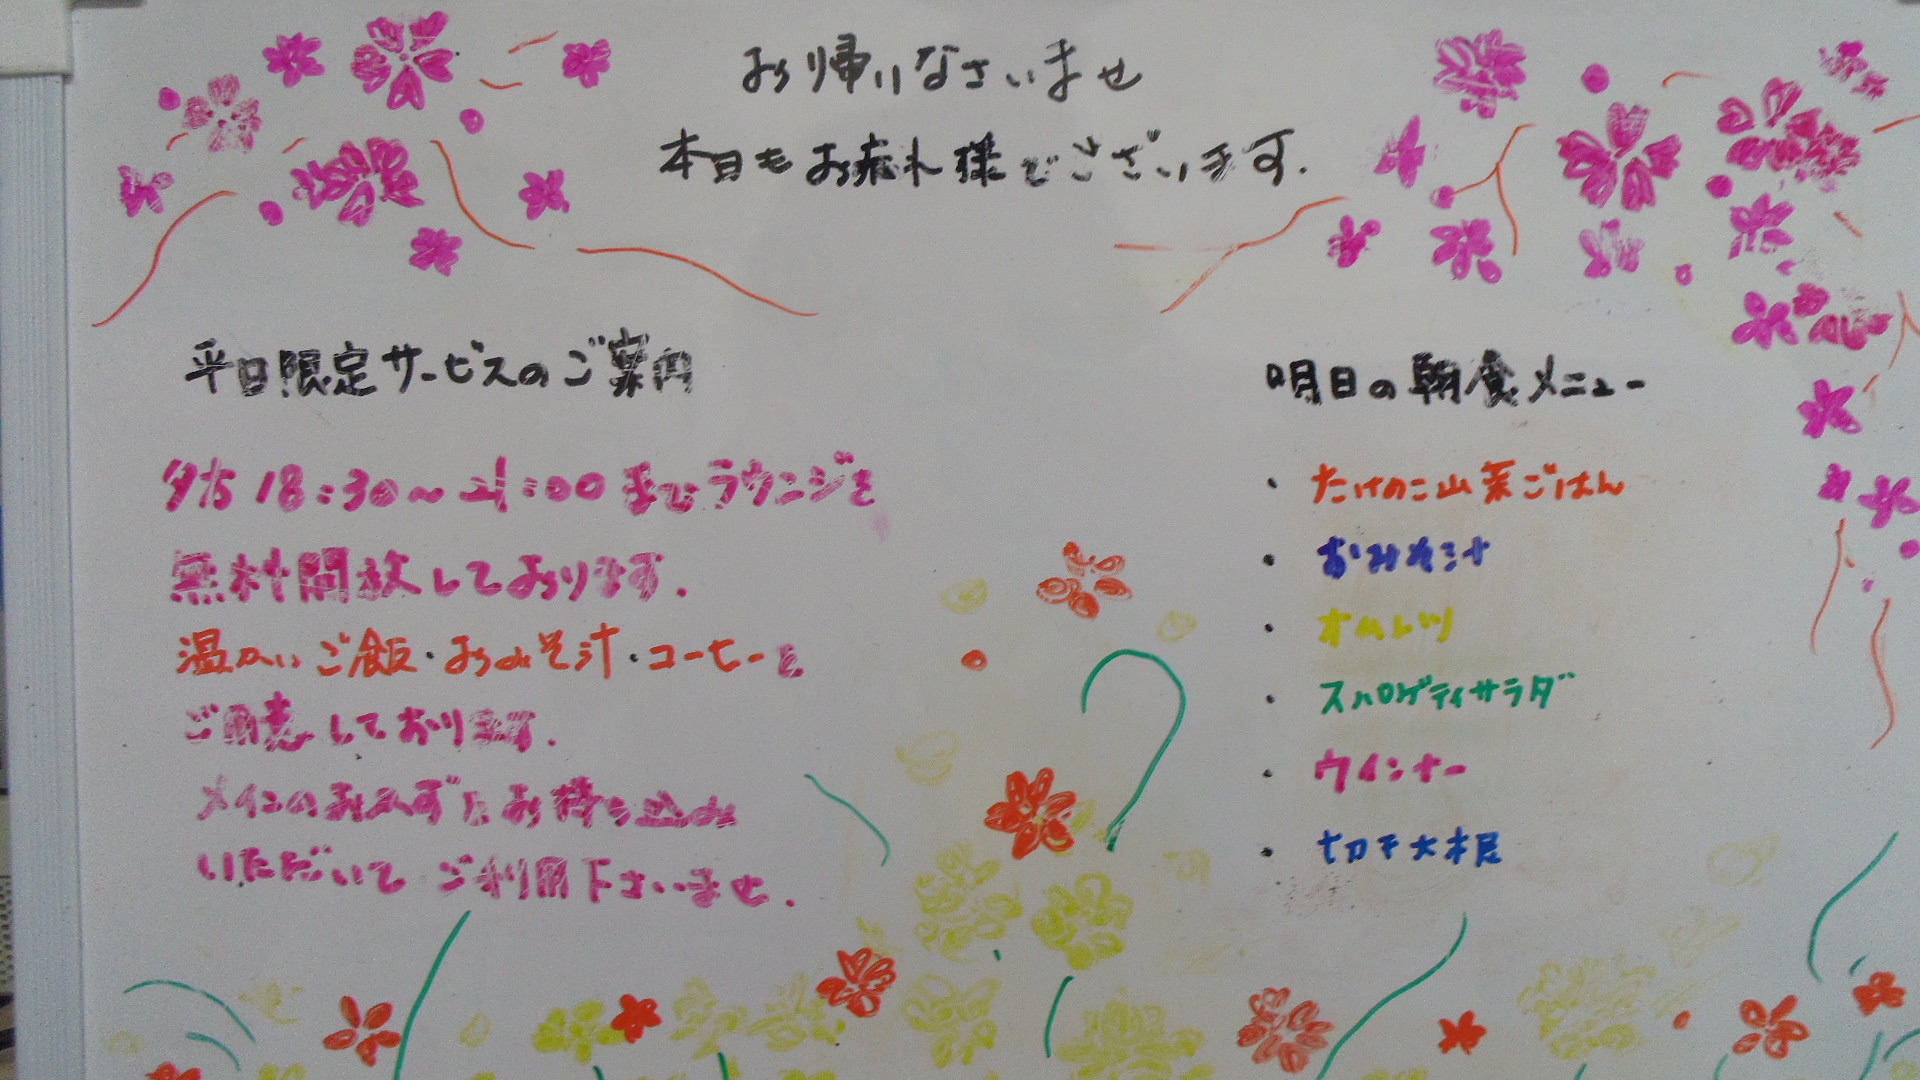 お帰りなさいませ
本日もお疲れ様でございます.
平日限定サービスのご案内
夕方 18:30～21:00 までラウンジを
無料開放しております.
温かいご飯・おみそ汁・コーヒーを
ご用意しております.
メインのおかずをお持ち込み
いただいてご利用下さいませ.
明日の朝食メニュー
・たけのこ山菜ごはん
・おみそ汁
・オムレツ
・スパゲティサラダ
・ウインナー
・切干大根